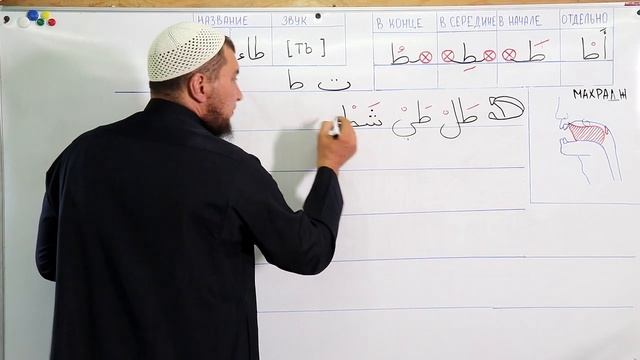 НАЗВАНИЕ ЗВУК В КОНЦЕ В СЕРЕДИНЕ В НАЧАЛЕ ОТДЕЛЬНО
طاء [ТЬ] ـطْ ـطـ طَـ أَطْ
ت ط
МАХРАДЖ
طَلْ طَيْ شَطْ